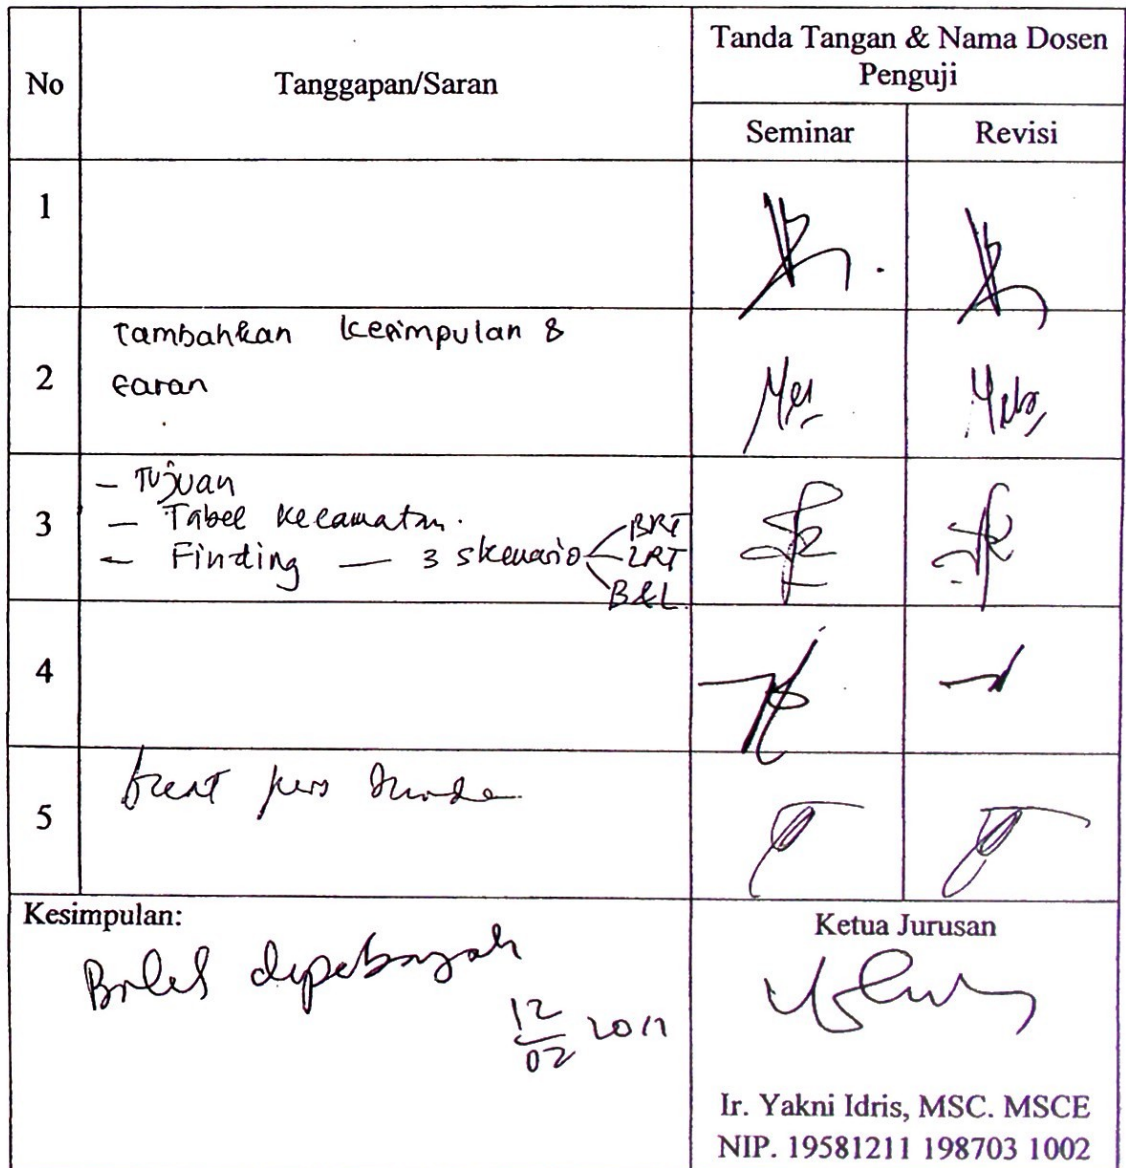 No
Tanggapan/Saran
Tanda Tangan & Nama Dosen
Penguji
Seminar
Revisi
1
2
Tambahkan kesimpulan &
saran
3
- Tujuan
- Tabel kecamatan.
- Finding — 3 skenario
BRT
LRT
B&L
4
5
Kesimpulan:
12
02
Ketua Jurusan
Ir. Yakni Idris, MSC. MSCE
NIP. 19581211 198703 1002